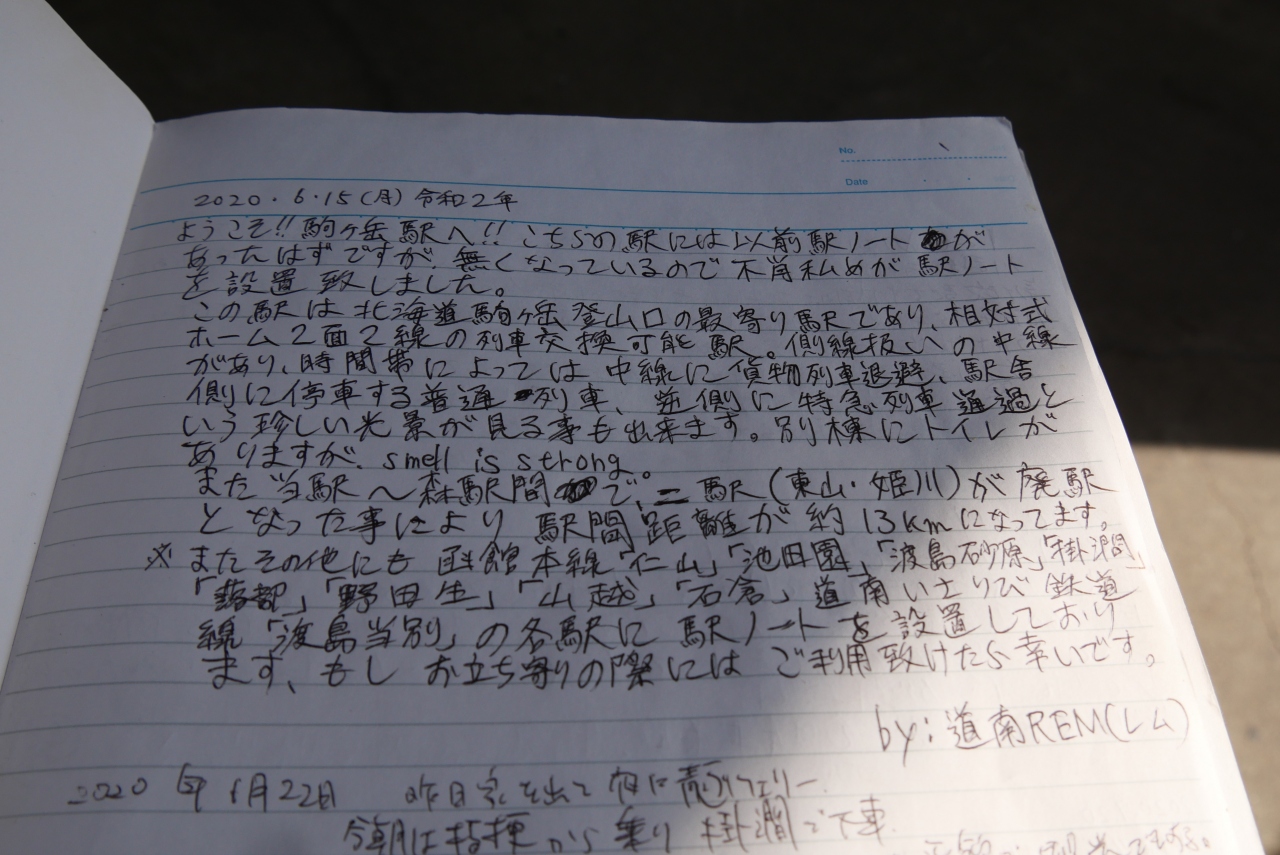 No.
Date
2020.6.15(月)令和2年
ようこそ!!駒ヶ岳駅へ!!こちらの駅には以前駅ノートが
あったはずですが 無くなっているので不肖私めが駅ノート
を設置致しました。
この駅は北海道駒ヶ岳登山口の最寄り駅であり、相対式
ホーム2面2線の列車交換可能駅。側線扱いの中線
があり、時間帯によっては中線に貨物列車退避、駅舎
側に停車する普通列車、逆側に特急列車通過と
いう珍しい光景が見る事も出来ます。別棟にトイレが
ありますが、smell is strong。
また当駅〜森駅間で、二駅(東山・姫川)が廃駅
となった事により駅間距離が約13kmになってます。
※またその他にも函館本線「仁山」「池田園」「渡島砂原」「掛澗」
「落部」「野田生」「山越」「石倉」道南いさりび鉄道
線「渡島当別」の各駅に駅ノートを設置しており
ます、もしお立ち寄りの際にはご利用致けたら幸いです。
by:道南REM(レム)
2020年6月22日 昨日家を出て
今朝は から乗り掛澗で下車